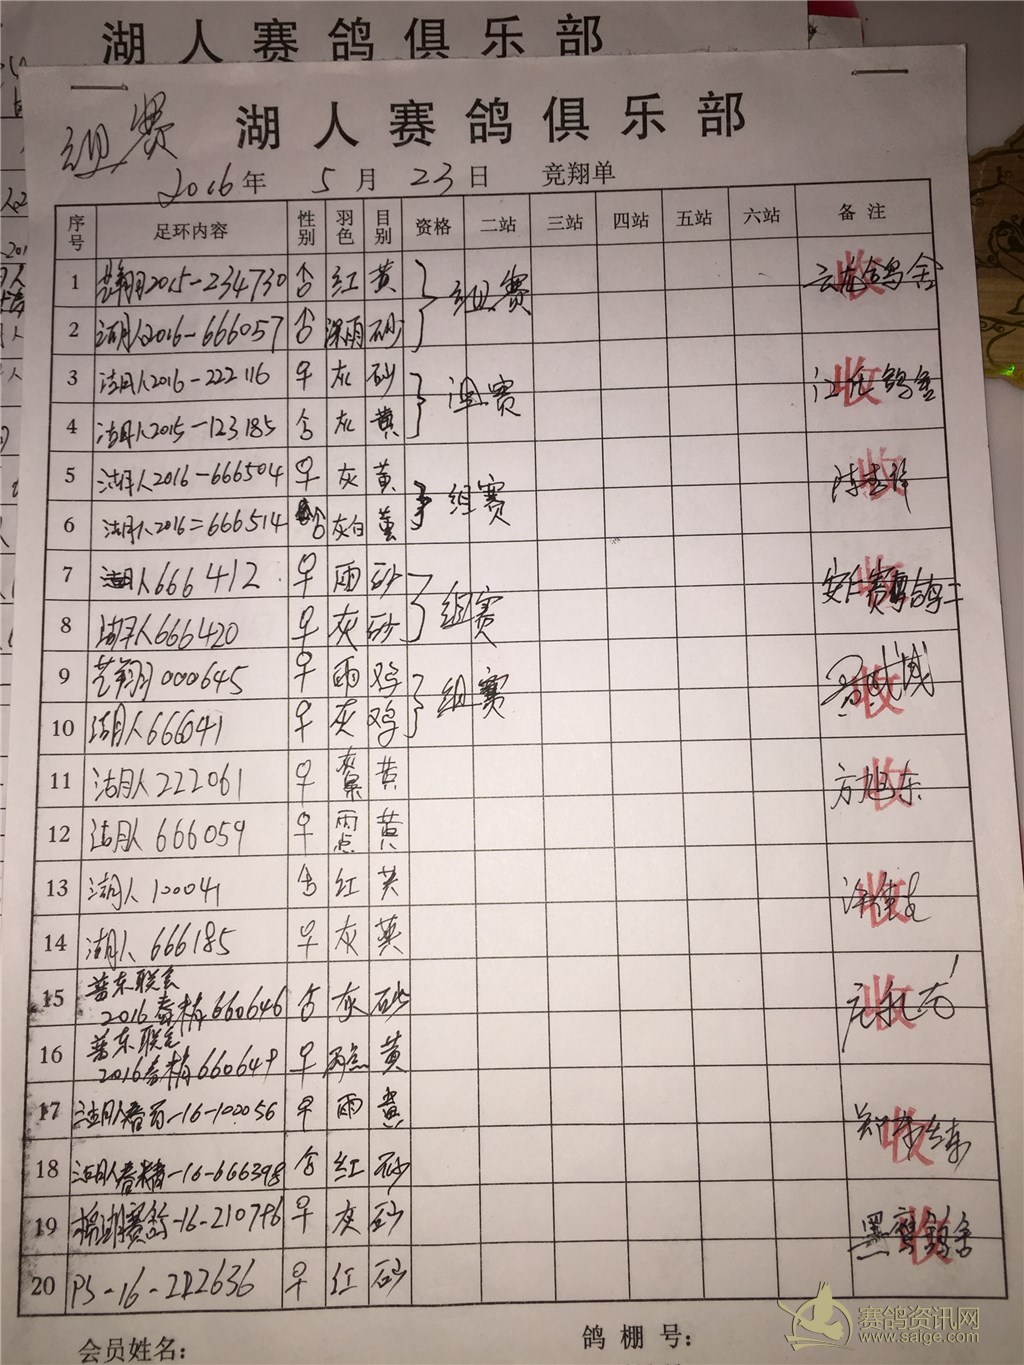 湖人赛鸽俱乐部
组赛
湖人赛鸽俱乐部
2016年 5月 23日 竞翔单
序号 足环内容 性别 羽色 目别 资格 二站 三站 四站 五站 六站 备注
1 芝翔2015-234730 合 红 黄 组赛 云龙鸽舍 收
2 湖人2016-666057 合 深雨 砂
3 湖人2016-222116 早 灰 砂 组赛 江 鸽舍 收
4 湖人2015-123185 合 灰 黄
5 湖人2016-666504 早 灰 黄 组赛 陈 收
6 湖人2016-666514 合 灰白 黄
7 湖人666412 早 雨 砂 组赛 安仁赛 收
8 湖人666420 早 灰 砂
9 芝翔000645 早 雨 鸡 组赛 收
10 湖人666041 早 灰 鸡
11 湖人222061 早 黄 方旭东 收
12 湖人 666059 早 雨点 黄
13 湖人100041 合 红 黄 收
14 湖人 666185 早 灰 黄
15 普东联会
2016春棉660646 合 灰 砂 收
16 普东联会
2016春棉660649 早 雨点 黄
17 湖人春百-16-100056 早 雨 黄 郑 收
18 湖人春精-16-666398 合 红 砂
19 棉湖赛鸽-16-210796 早 灰 砂 黑鹰鸽舍 收
20 PS-16-222636 早 红 砂
会员姓名： 鸽棚号：
赛鸽资讯网
www.saige.com